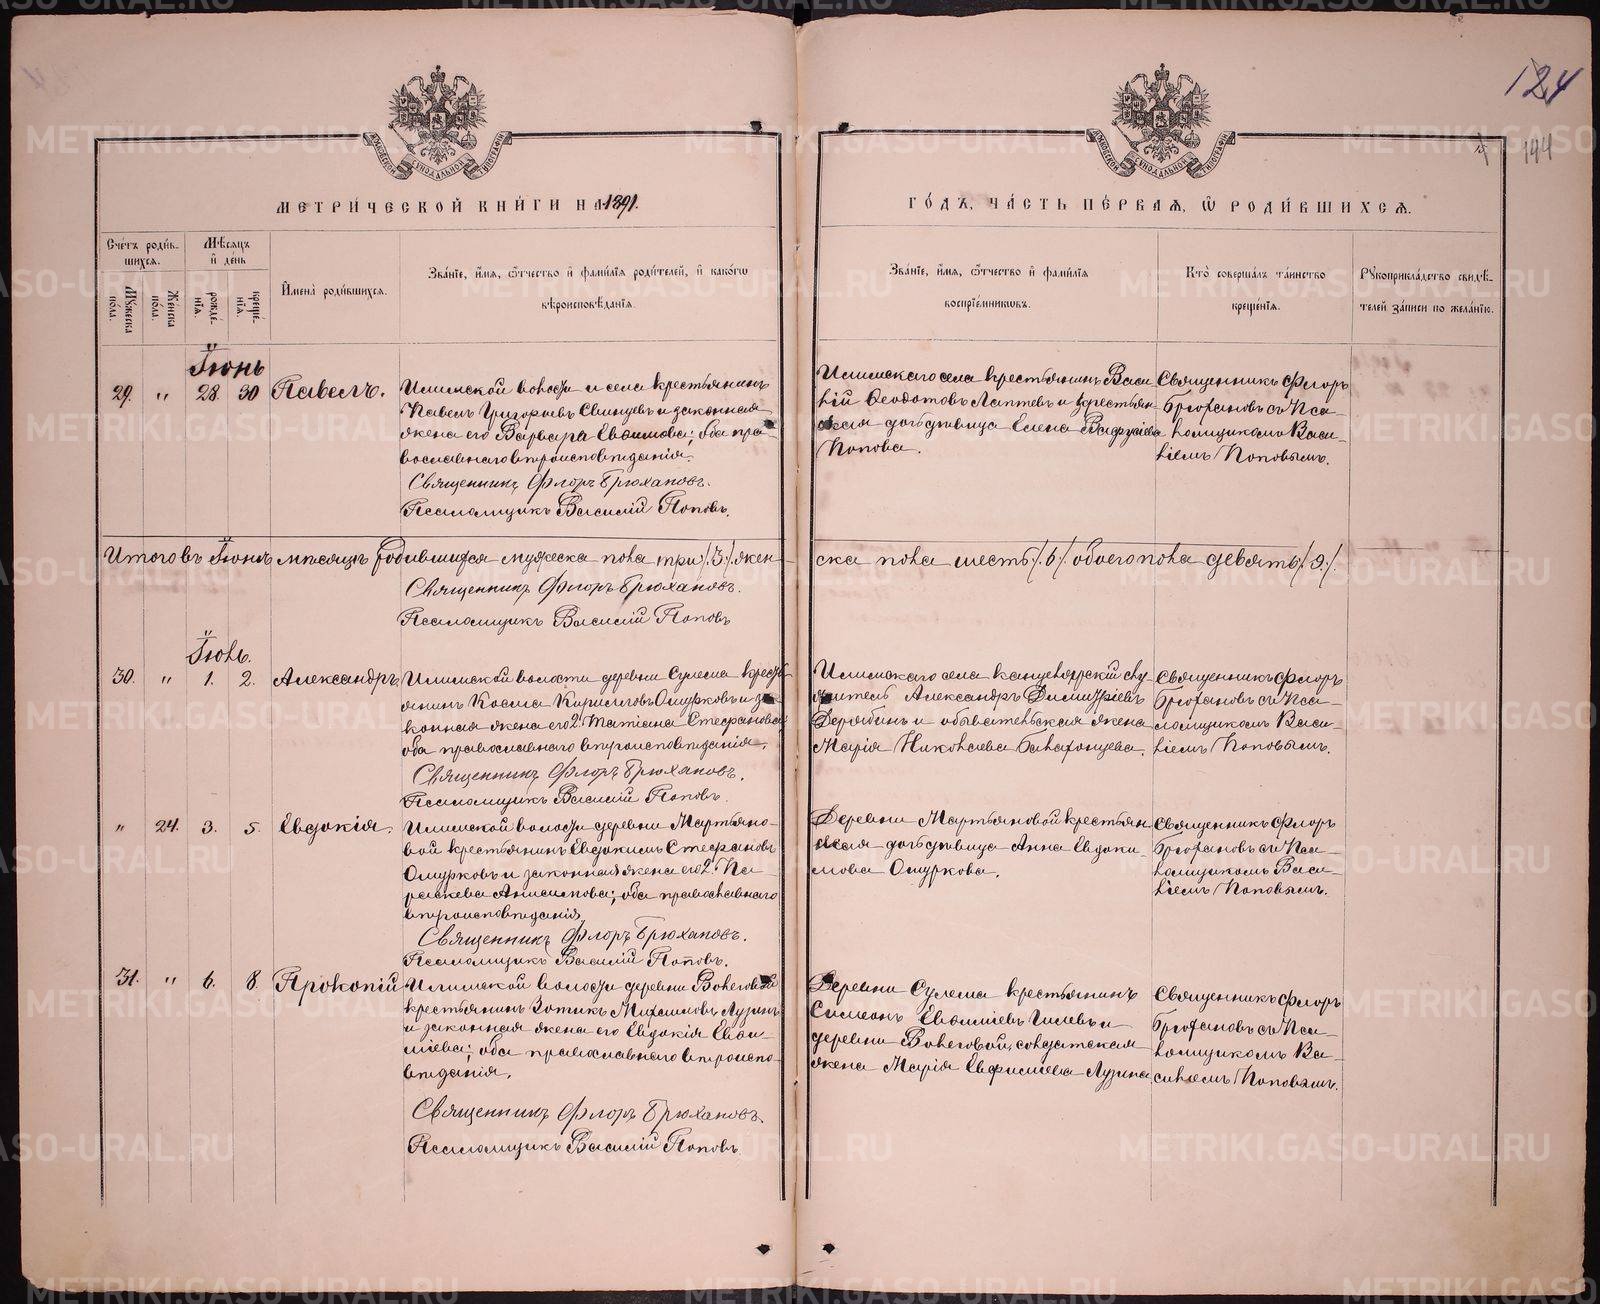 124
144
МЕТРИ́ЧЕСКОЙ КНИ́ГИ НА 1891.
ГО́ДЪ, ЧА́СТЬ ПЕ́РВАЯ, Ѽ РОДИ́ВШИХСЯ.
Сче́тъ роди́в-
шихся.
Му́жеска по́ла.
Же́нска по́ла.
Мѣ́сяцъ
и҆ де́нь
рожде́-
нїя.
креще́-
нїя.
И҆мена̀ роди́вшихся.
Зва́нїе, и҆́мя, ѻ҆́тчество и҆ фами́лїя роди́телей, и҆ како́гѡ
вѣроисповѣ́данїя.
Зва́нїе, и҆́мя, ѻ҆́тчество и҆ фами́лїя
воспрїе́мниковъ.
Кто̀ соверша́лъ та́инство
креще́нїя.
Рꙋкоприкла́дство свидѣ́-
телей за́писи по жела́нїю.
Іюнь
29. " 28. 30 Павелъ.
Илимской волости и села крестьянинъ
Павелъ Григорьевъ Свинцевъ и законная
жена его Варвара Евдимова; оба пра-
вославнаго вѣроисповѣданія.
Священникъ Флоръ Брюхановъ.
Псаломщикъ Василій Поповъ.
Илимскаго села крестьянинъ Васи-
лій Ѳеодотовъ Лаптевъ и крестьян-
ская дочь дѣвица Елена
Попова.
Священникъ Флоръ
Брюхановъ съ Пса-
ломщикомъ Васи-
ліемъ Поповымъ.
Итого въ Іюнѣ мѣсяцѣ родившихся мужеска пола три /.3./ жен-
ска пола шесть /.6./ обоего пола девять /.9./.
Священникъ Флоръ Брюхановъ.
Псаломщикъ Василій Поповъ
Іюль.
30. " 1. 2. Александръ.
Илимской волости деревни Сулема кресть-
янинъ Косма Кирилловъ Ошурковъ и за-
конная жена его 2. Татіана Стефановна;
оба православнаго вѣроисповѣданія.
Священникъ Флоръ Брюхановъ.
Псаломщикъ Василій Поповъ.
Илимскаго села канцелярскій слу-
житель Александръ Димитріевъ
Дерябинъ и обывательская жена
Марія Николаева Балахонцева.
Священникъ Флоръ
Брюхановъ съ Пса-
ломщикомъ Васи-
ліемъ Поповымъ.
" 24. 3. 5. Евдокія.
Илимской волости деревни Мартьяно-
вой крестьянинъ Евдокимъ Стефановъ
Ошурковъ и законная жена его 2. Па-
раскева Анисимова; оба православнаго
вѣроисповѣданія
Священникъ Флоръ Брюхановъ.
Псаломщикъ Василій Поповъ.
Деревни Мартьяновой крестьян-
ская дочь дѣвица Анна Евдоки-
мова Ошуркова.
Священникъ Флоръ
Брюхановъ съ Пса-
ломщикомъ Васи-
ліемъ Поповымъ.
31. " 6. 8. Прокопій
Илимской волости деревни Волеговой
крестьянинъ Зотикъ Михаиловъ Лузинъ
и законная жена его Евдокія Евфи-
міева; оба православнаго вѣроиспо-
вѣданія.
Священникъ Флоръ Брюхановъ.
Псаломщикъ Василій Поповъ
Деревни Сулема крестьянинъ
Симеонъ Евфиміевъ Гилевъ и
деревни Волеговой, солдатская
жена Марія Евфиміева Лузина
Священникъ Флоръ
Брюхановъ съ Пса-
ломщикомъ Ва-
силіемъ Поповымъ.
METRIKI.GASO-URAL.RU